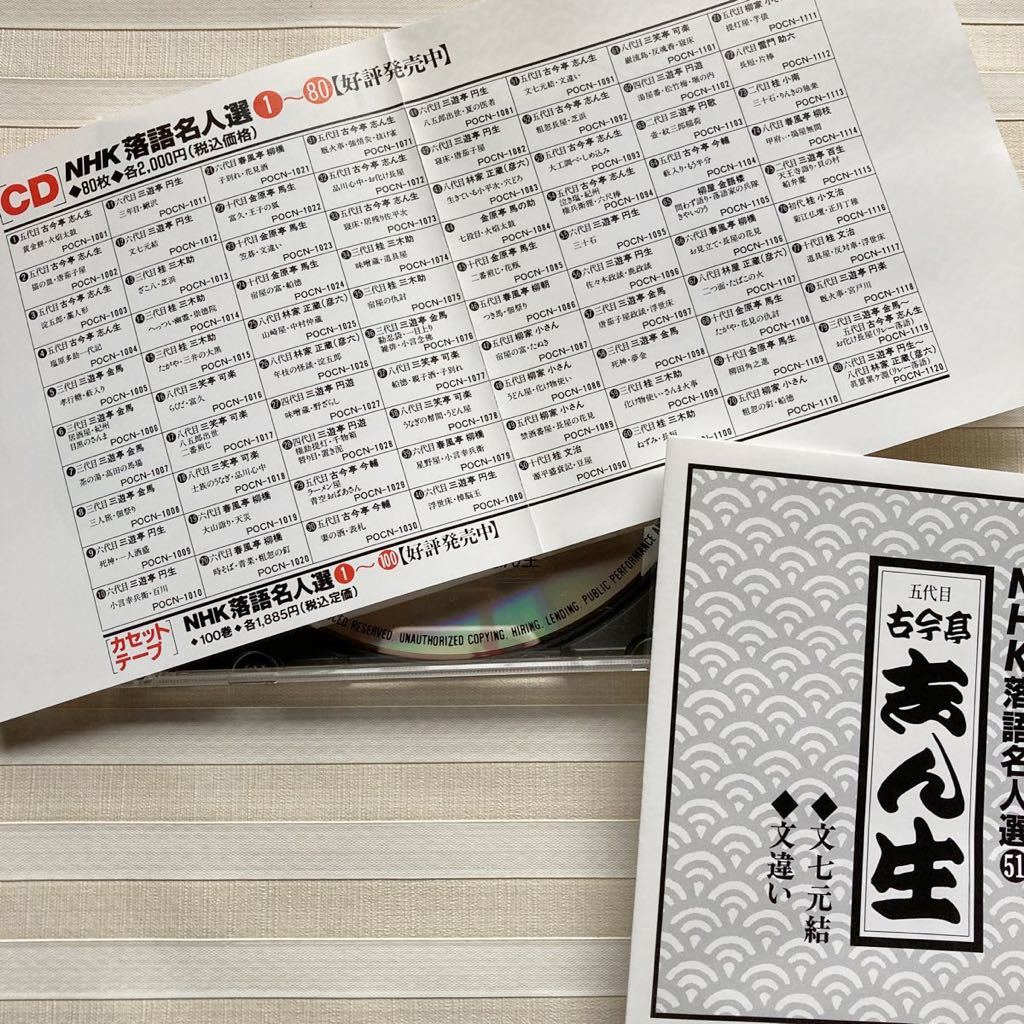 [CD]
NHK 落語名人選 1〜80【好評発売中】
◆80枚◆各2,000円(税込価格)
1 五代目 古今亭 志ん生
黄金餅・火焰太鼓
POCN-1001
2 五代目 古今亭 志ん生
猫の皿・唐茄子屋
POCN-1002
3 五代目 古今亭 志ん生
淀五郎・藁人形
POCN-1003
4 五代目 古今亭 志ん生
塩原多助一代記
POCN-1004
5 三代目 三遊亭 金馬
孝行糖・藪入り
POCN-1005
6 三代目 三遊亭 金馬
居酒屋・紀州
目黒のさんま
POCN-1006
7 三代目 三遊亭 金馬
茶の湯・高田の馬場
POCN-1007
8 三代目 三遊亭 金馬
三人旅・佃祭り
POCN-1008
9 六代目 三遊亭 円生
死神・一人酒盛
POCN-1009
10 六代目 三遊亭 円生
小言幸兵衛・百川
POCN-1010
11 六代目 三遊亭 円生
三年目・鰍沢
POCN-1011
12 六代目 三遊亭 円生
文七元結
POCN-1012
13 三代目 桂 三木助
ざこ八・芝浜
POCN-1013
14 三代目 桂 三木助
へっつい幽霊・崇徳院
POCN-1014
15 三代目 桂 三木助
たがや・三井の大黒
POCN-1015
16 八代目 三笑亭 可楽
らくだ・富久
POCN-1016
17 八代目 三笑亭 可楽
八五郎出世
二番煎じ
POCN-1017
18 八代目 三笑亭 可楽
士族のうなぎ・品川心中
POCN-1018
19 六代目 春風亭 柳橋
大山詣り・天災
POCN-1019
20 六代目 春風亭 柳橋
時そば・青菜・粗忽の釘
POCN-1020
21 六代目 春風亭 柳橋
子別れ・花見酒
POCN-1021
22 十代目 金原亭 馬生
富久・王子の狐
POCN-1022
23 十代目 金原亭 馬生
笠碁・文違い
POCN-1023
24 十代目 金原亭 馬生
宿屋の富・船徳
POCN-1024
25 八代目 林家 正蔵(彦六)
山崎屋・中村仲蔵
POCN-1025
26 八代目 林家 正蔵(彦六)
年枝の怪談・淀五郎
POCN-1026
27 四代目 三遊亭 円遊
味噌蔵・野ざらし
POCN-1027
28 四代目 三遊亭 円遊
権助提灯・干物箱
替り目・置き泥
POCN-1028
29 五代目 古今亭 今輔
ラーメン屋
青空おばあさん
POCN-1029
30 五代目 古今亭 今輔
妻の酒・表札
POCN-1030
31 五代目 古今亭 志ん生
厩火事・強情灸・抜け雀
POCN-1071
32 五代目 古今亭 志ん生
品川心中・お化け長屋
POCN-1072
33 五代目 古今亭 志ん生
寝床・居残り佐平次
POCN-1073
34 三代目 桂 三木助
味噌蔵・道具屋
POCN-1074
35 三代目 桂 三木助
宿屋の仇討
POCN-1075
36 三代目 三遊亭 金馬
勘忍袋・一目上り
雑俳・小言念仏
POCN-1076
37 八代目 三笑亭 可楽
船徳・親子酒・子別れ
POCN-1077
38 八代目 三笑亭 可楽
うなぎの幇間・うどん屋
POCN-1078
39 六代目 春風亭 柳橋
星野屋・小言幸兵衛
POCN-1079
40 六代目 三遊亭 円生
浮世床・樟脳玉
POCN-1080
41 六代目 三遊亭 円生
八五郎出世・夏の医者
POCN-1081
42 六代目 三遊亭 円生
寝床・唐茄子屋
POCN-1082
43 八代目 林家 正蔵(彦六)
生きている小平次・穴どろ
POCN-1083
44 金原亭 馬の助
七段目・火焰太鼓
POCN-1084
45 十代目 金原亭 馬生
二番煎じ・花瓶
POCN-1085
46 五代目 春風亭 柳朝
つき馬・佃祭り
POCN-1086
47 五代目 柳家 小さん
宿屋の富・たぬき
POCN-1087
48 五代目 柳家 小さん
うどん屋・化け物使い
POCN-1088
49 五代目 柳家 小さん
禁酒番屋・長屋の花見
POCN-1089
50 十代目 桂 文治
源平盛衰記・豆屋
POCN-1090
51 五代目 古今亭 志ん生
文七元結・文違い
POCN-1091
52 五代目 古今亭 志ん生
粗忽長屋・芝浜
POCN-1092
53 五代目 古今亭 志ん生
大工調べ・しめ込み
POCN-1093
54 五代目 古今亭 志ん生
泣き塩・紀州
権兵衛狸・六尺棒
POCN-1094
55 六代目 三遊亭 円生
三十石
POCN-1095
56 六代目 三遊亭 円生
佐々木政談・鹿政談
POCN-1096
57 三代目 三遊亭 金馬
唐茄子屋政談・浮世床
POCN-1097
58 三代目 三遊亭 金馬
死神・夢金
POCN-1098
59 三代目 桂 三木助
化け物使い・さんま火事
POCN-1099
60 三代目 桂 三木助
ねずみ・長短
POCN-1100
61 八代目 三笑亭 可楽
巌流島・反魂香・寝床
POCN-1101
62 四代目 三遊亭 円遊
湯屋番・松竹梅・堀の内
POCN-1102
63 三遊亭 円歌
壺・紋三郎稲荷
POCN-1103
64 五代目 古今亭 今輔
藪入り・もう半分
POCN-1104
65 柳屋 金語楼
問わず語り・落語家の兵隊
きやいのう
POCN-1105
66 六代目 春風亭 柳橋
お見立て・長屋の花見
POCN-1106
67 八代目 林屋 正蔵(彦六)
二つ面・たばこの火
POCN-1107
68 十代目 金原亭 馬生
たがや・花見の仇討
POCN-1108
69 十代目 金原亭 馬生
柳田角之進
POCN-1109
70 五代目 柳家 小さん
粗忽の釘・船徳
POCN-1110
71 五代目 柳家 小さ
提灯屋・芋俵
POCN-1111
72 八代目 雷門 助六
長短・片棒
POCN-1112
73 桂 小南
三十石・りんきの独楽
POCN-1113
74 八代目 春風亭 柳枝
甲府ぃ・鶏屋無間
POCN-1114
75 三遊亭 百生
天王寺詣り・貝の村
船弁慶
POCN-1115
76 初代 桂 小文治
菊江仏壇・正月丁稚
POCN-1116
77 十代目 桂 文治
道具屋・反対車・浮世床
POCN-1117
78 五代目 三遊亭 円楽
厩火事・宮戸川
POCN-1118
79 三代目 三遊亭 金馬〜
五代目 古今亭 志ん生
お化け長屋(リレー落語)
POCN-1119
80 六代目 三遊亭 円生〜
八代目 林家 正蔵(彦六)
真景累ケ淵(リレー落語)
POCN-1120
[カセットテープ]
NHK 落語名人選 1〜100【好評発売中】
◆100巻◆各1,885円(税込定価)
RESERVED. UNAUTHORIZED COPYING, HIRING, LENDING, PUBLIC PERFORMANCE
NHK落語名人選51
五代目
古今亭
志ん生
◆文七元結
◆文違い